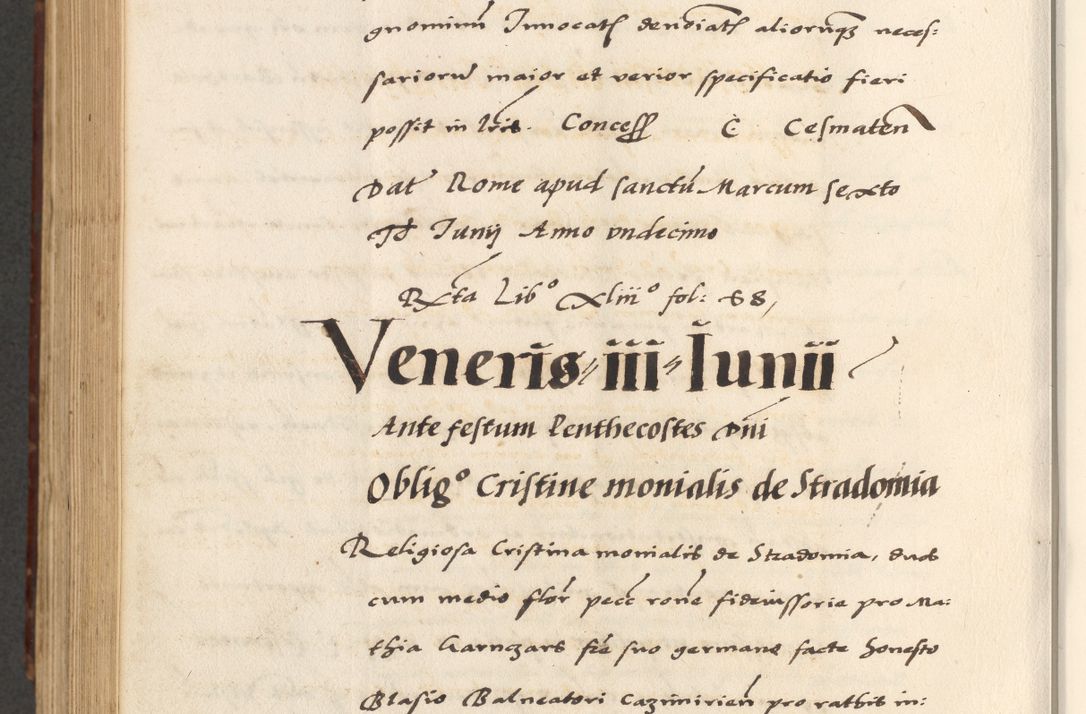 gnominū Innocatɽ denoīatɽ aliorūqȝ neces:
sarioruꝫ maior et verior specificatio fieri
possit in lr̄is. Concess C Cesmaten
Dat Rome apud sanctū Marcum sexto
Id Iunij Anno vndecimo
Rx̄ta Lib° xliii° fol: 88,
Veneris iii Iunii
Ante festum Penthecostes Dīni
Oblig° Cristine monialis de Stradomia
Religiosa Cristina monialis de Stradomia, duos
cum medio flor pecc rōne fideiussorie pro Ma:
thia Garnczars frē suo germane facte honesto
Blasio Balneatori Cazimirien̄ pro rathis in: